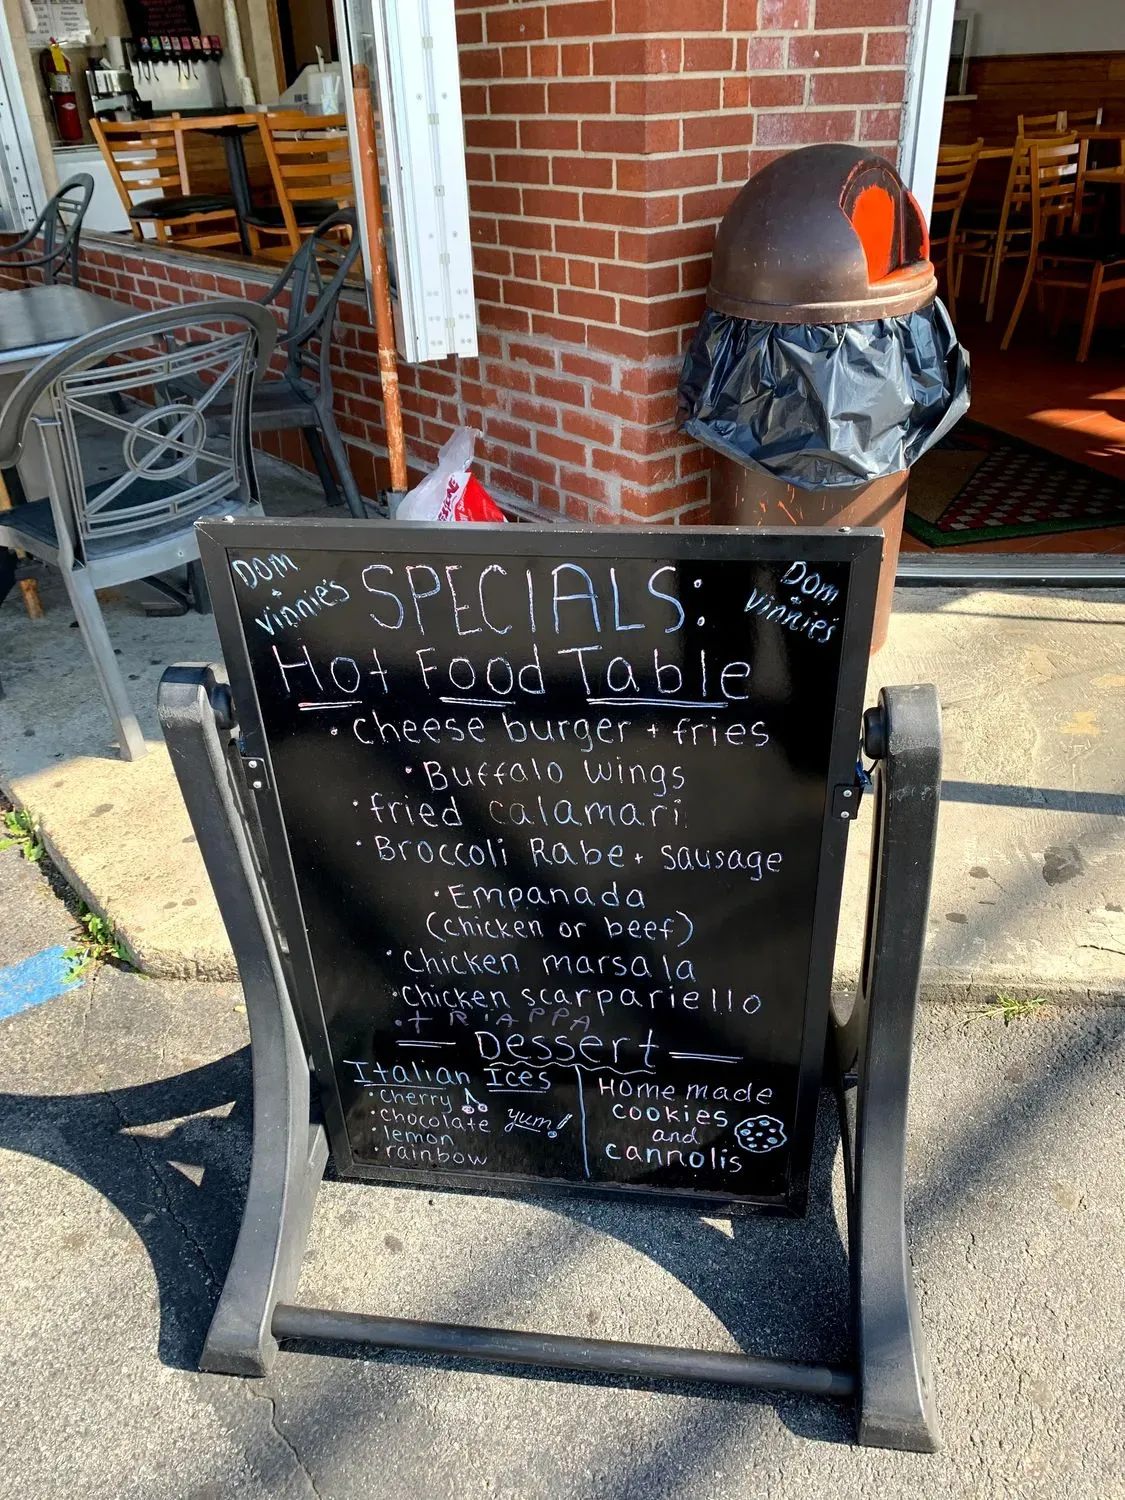 Dom
+
Vinnie's
SPECIALS:
Dom
+
Vinnie's
Hot Food Table
• Cheese burger + fries
• Buffalo wings
• fried calamari
• Broccoli Rabe + sausage
• Empanada
(chicken or beef)
• Chicken marsala
• Chicken scarpariello
• TRIAPPA
Dessert
Italian Ices
• cherry
• chocolate
yum!
• lemon
• rainbow
Home made
cookies
and
cannolis